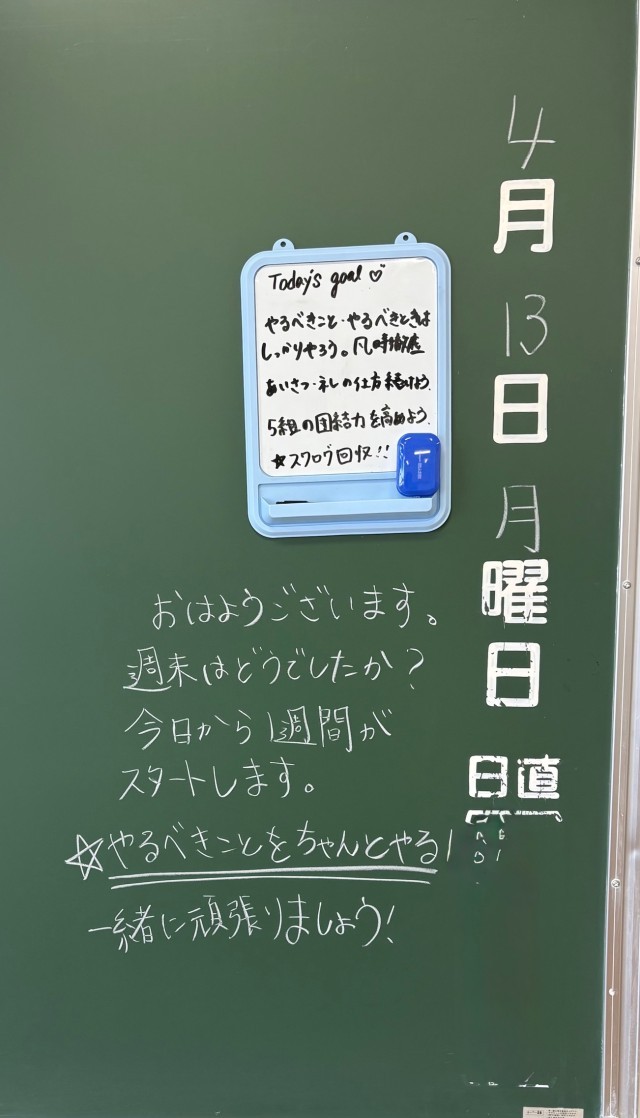 4月13日月曜日
日直
Today's goal ♡
やるべきこと・やるべきときは
しっかりやろう。凡時徹底
あいさつ・ネしの仕方 続けよう.
5組の団結力を高めよう.
☆スクログ回収!!
おはようございます。
週末はどうでしたか?
今日から1週間が
スタートします。
☆やるべきことをちゃんとやる!
一緒に頑張りましょう!